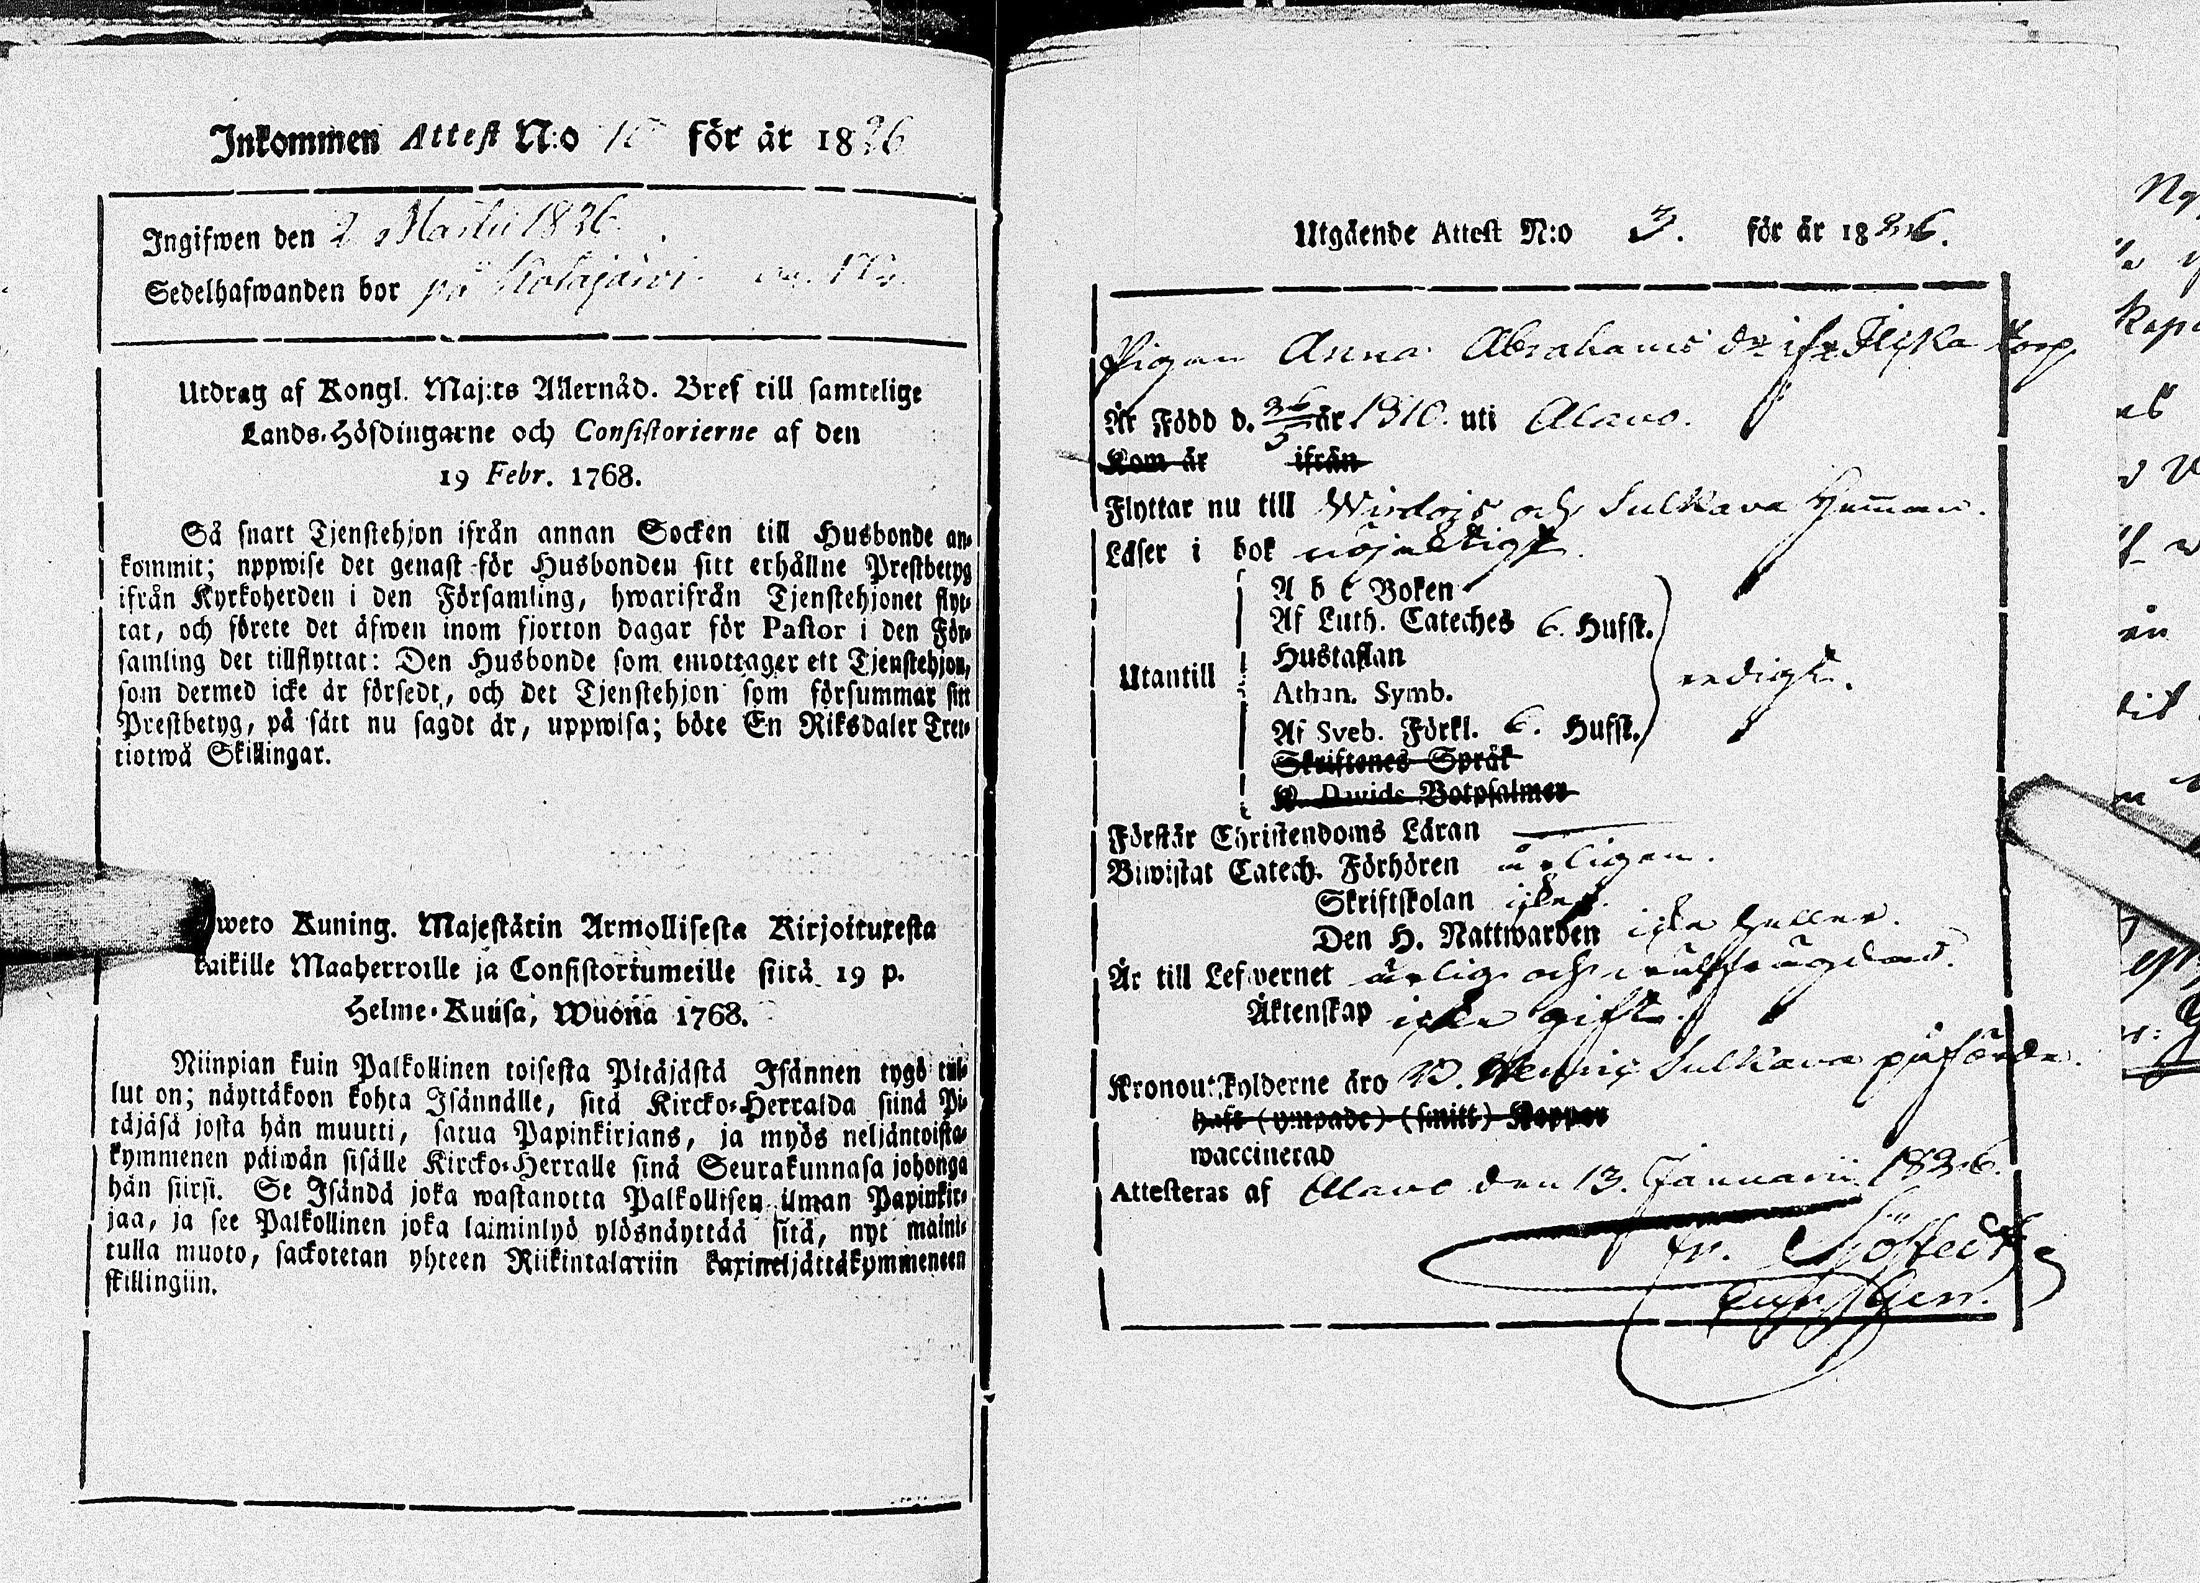 Inkommen Attest N:o 10 för år 1836
Ingifwen den 2 Martii 1836.
Sedelhafwanden bor på
Utdrag af Kongl. Maj:ts Allernåd. Bref till samtelige
Lands-Höfdingarne och Consistorierne af den
19 Febr. 1768.
Så snart Tjenstehjon ifrån annan Socken till Husbonde an-
kommit; uppwise det genast för Husbonden sitt erhållne Prestbetyg
ifrån Kyrkoherden i den Församling, hwarifrån Tjenstehjonet flyt-
tat, och förete det äfwen inom fjorton dagar för Pastor i den För-
samling det tillflyttat: Den Husbonde som emottager ett Tjenstehjon,
som dermed icke är försedt, och det Tjenstehjon som försummar sitt
Prestbetyg, på sätt nu sagdt är, uppwisa; böte En Riksdaler Tret-
tiotwå Skillingar.
weto Kuning. Majestätin Armollisesta Kirjoituxesta
kaikille Maaherroille ja Consistoriumeille siitä 19 p.
Helme-Kuusa, Wuonna 1768.
Niinpian kuin Palkollinen toisesta Pitäjästä Isännen tygö tul-
lut on; näyttäkoon kohta Isännälle, sitä Kircko-Herralda siinä Pi-
täjäsä josta hän muutti, saatua Papinkirjans, ja myös neljäntoista-
kymmenen päiwän sisälle Kircko-Herralle siinä Seurakunnasa johonga
hän siirsi. Se Isändä joka wastanotta Palkollisen ilman Papinkir-
jaa, ja see Palkollinen joka laiminlyö ylösnäyttää sitä, nyt maini-
tulla muoto, sackotetan yhteen Riikintalariin kaxineljättäkymmeneen
skillingiin.
Utgående Attest N:o 3. för år 1836.
Pigan Anna Abrahams dr ifr. Flyka torp
Är Född d. 26/5 år 1810. uti Alavo.
Kom år ifrån
Flyttar nu till Wirdois och Sulkava Hemman.
Läser i bok nöjaktigt.
A b c Boken
Af Luth. Cateches 6. Hufst.
Hustaflan
Utantill
Athan. Symb.
redigt.
Af Sveb. Förkl. 6. Hufst.
Skriftenes Språk
K. Davids Botpsalmer
Förstår Christendoms Läran
Biwistat Catech. Förhören årligen.
Skriftskolan icke.
Den H. Nattwarden icke heller.
Är till Lefwernet ärlig och
Äktenskap icke gift.
Kronoutskylderne äro Sulkava påförde.
haft (ympade) (smitt) Koppor
waccinerad
Attesteras af Alavo den 13. Januarii 1836.